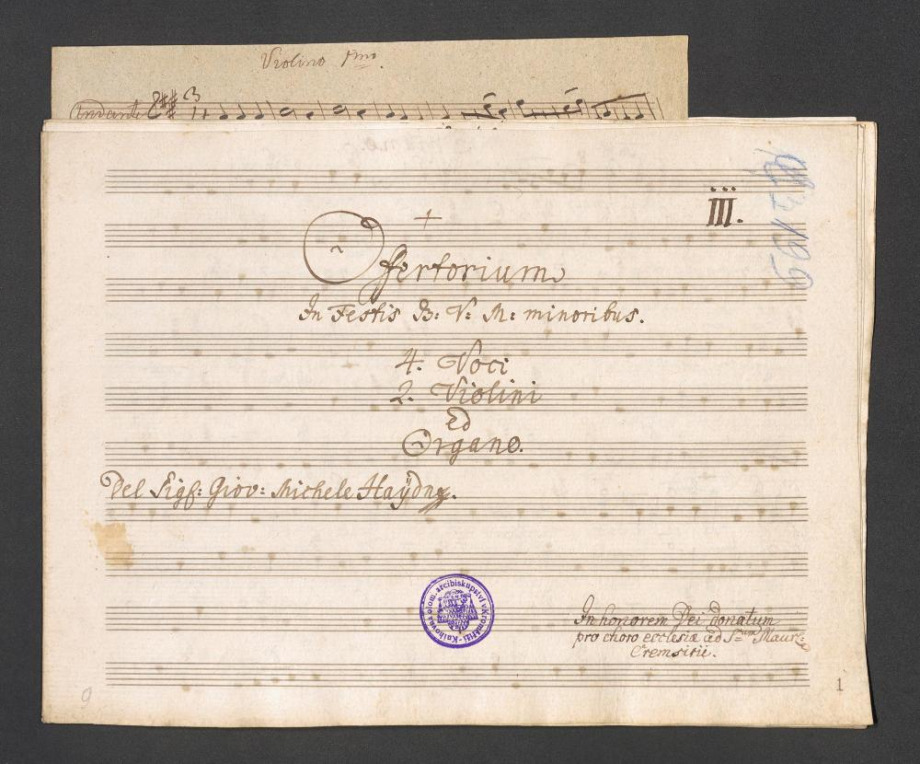 Violino 1mo.
Andante
3
III.
Offertorium
In Festis B: V: M: minoribus.
4. Voci
2. Violini
Ed
Organo.
Del Sigf: Giov: Michele Haydn.
Knihovna olom. arcibiskupství v Kroměříži
In honorem Dei donatum
pro choro ecclesiæ ad S=um Maur:
Cremsirii.
1